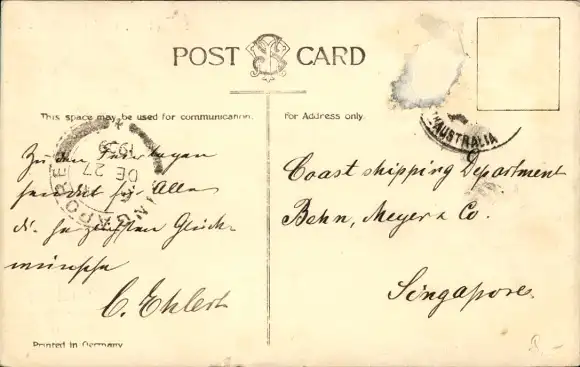 POST CARD
This space may be used for communication.
For Address only.
Zu den Feiertagen
sendet für Alle
die herzlichsten Glück-
wünsche
C. Ehlert
SINGAPORE
DE 27
AUSTRALIA
Coast shipping Department
Behn, Meyer & Co.
Singapore.
Printed in Germany